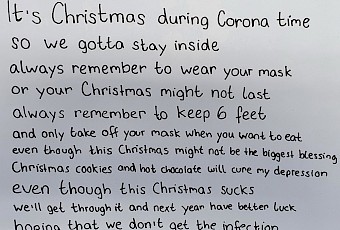 It's Christmas during Corona time
so we gotta stay inside
always remember to wear your mask
or your Christmas might not last
always remember to keep 6 feet
and only take off your mask when you want to eat
even though this Christmas might not be the biggest blessing
Christmas cookies and hot chocolate will cure my depression
even though this Christmas sucks
we'll get through it and next year have better luck
hoping that we don't get the infection